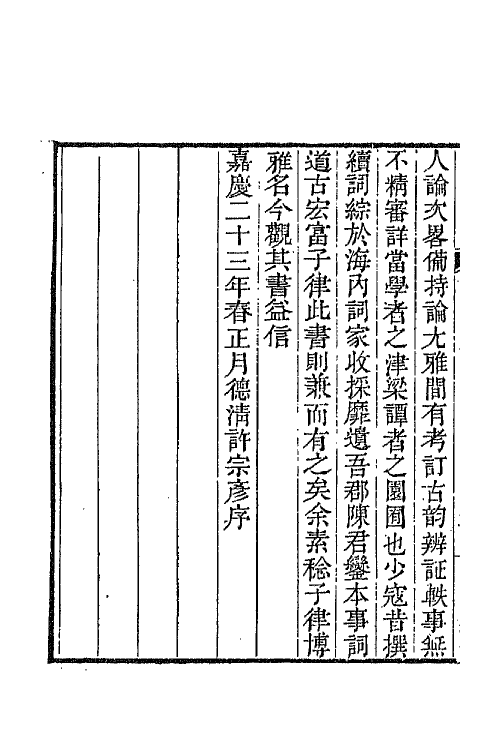 人論次畧備持論尢雅間有考訂古韵辨証軼事無
不精審詳當學者之津梁譚者之園囿也少寇昔撰
續詞綜於海內詞家收採靡遺吾郡陳君鑾本事詞
道古宏富子律此書則兼而有之矣余素稔子律博
雅名今觀其書益信
嘉慶二十三年春正月德淸許宗彥序